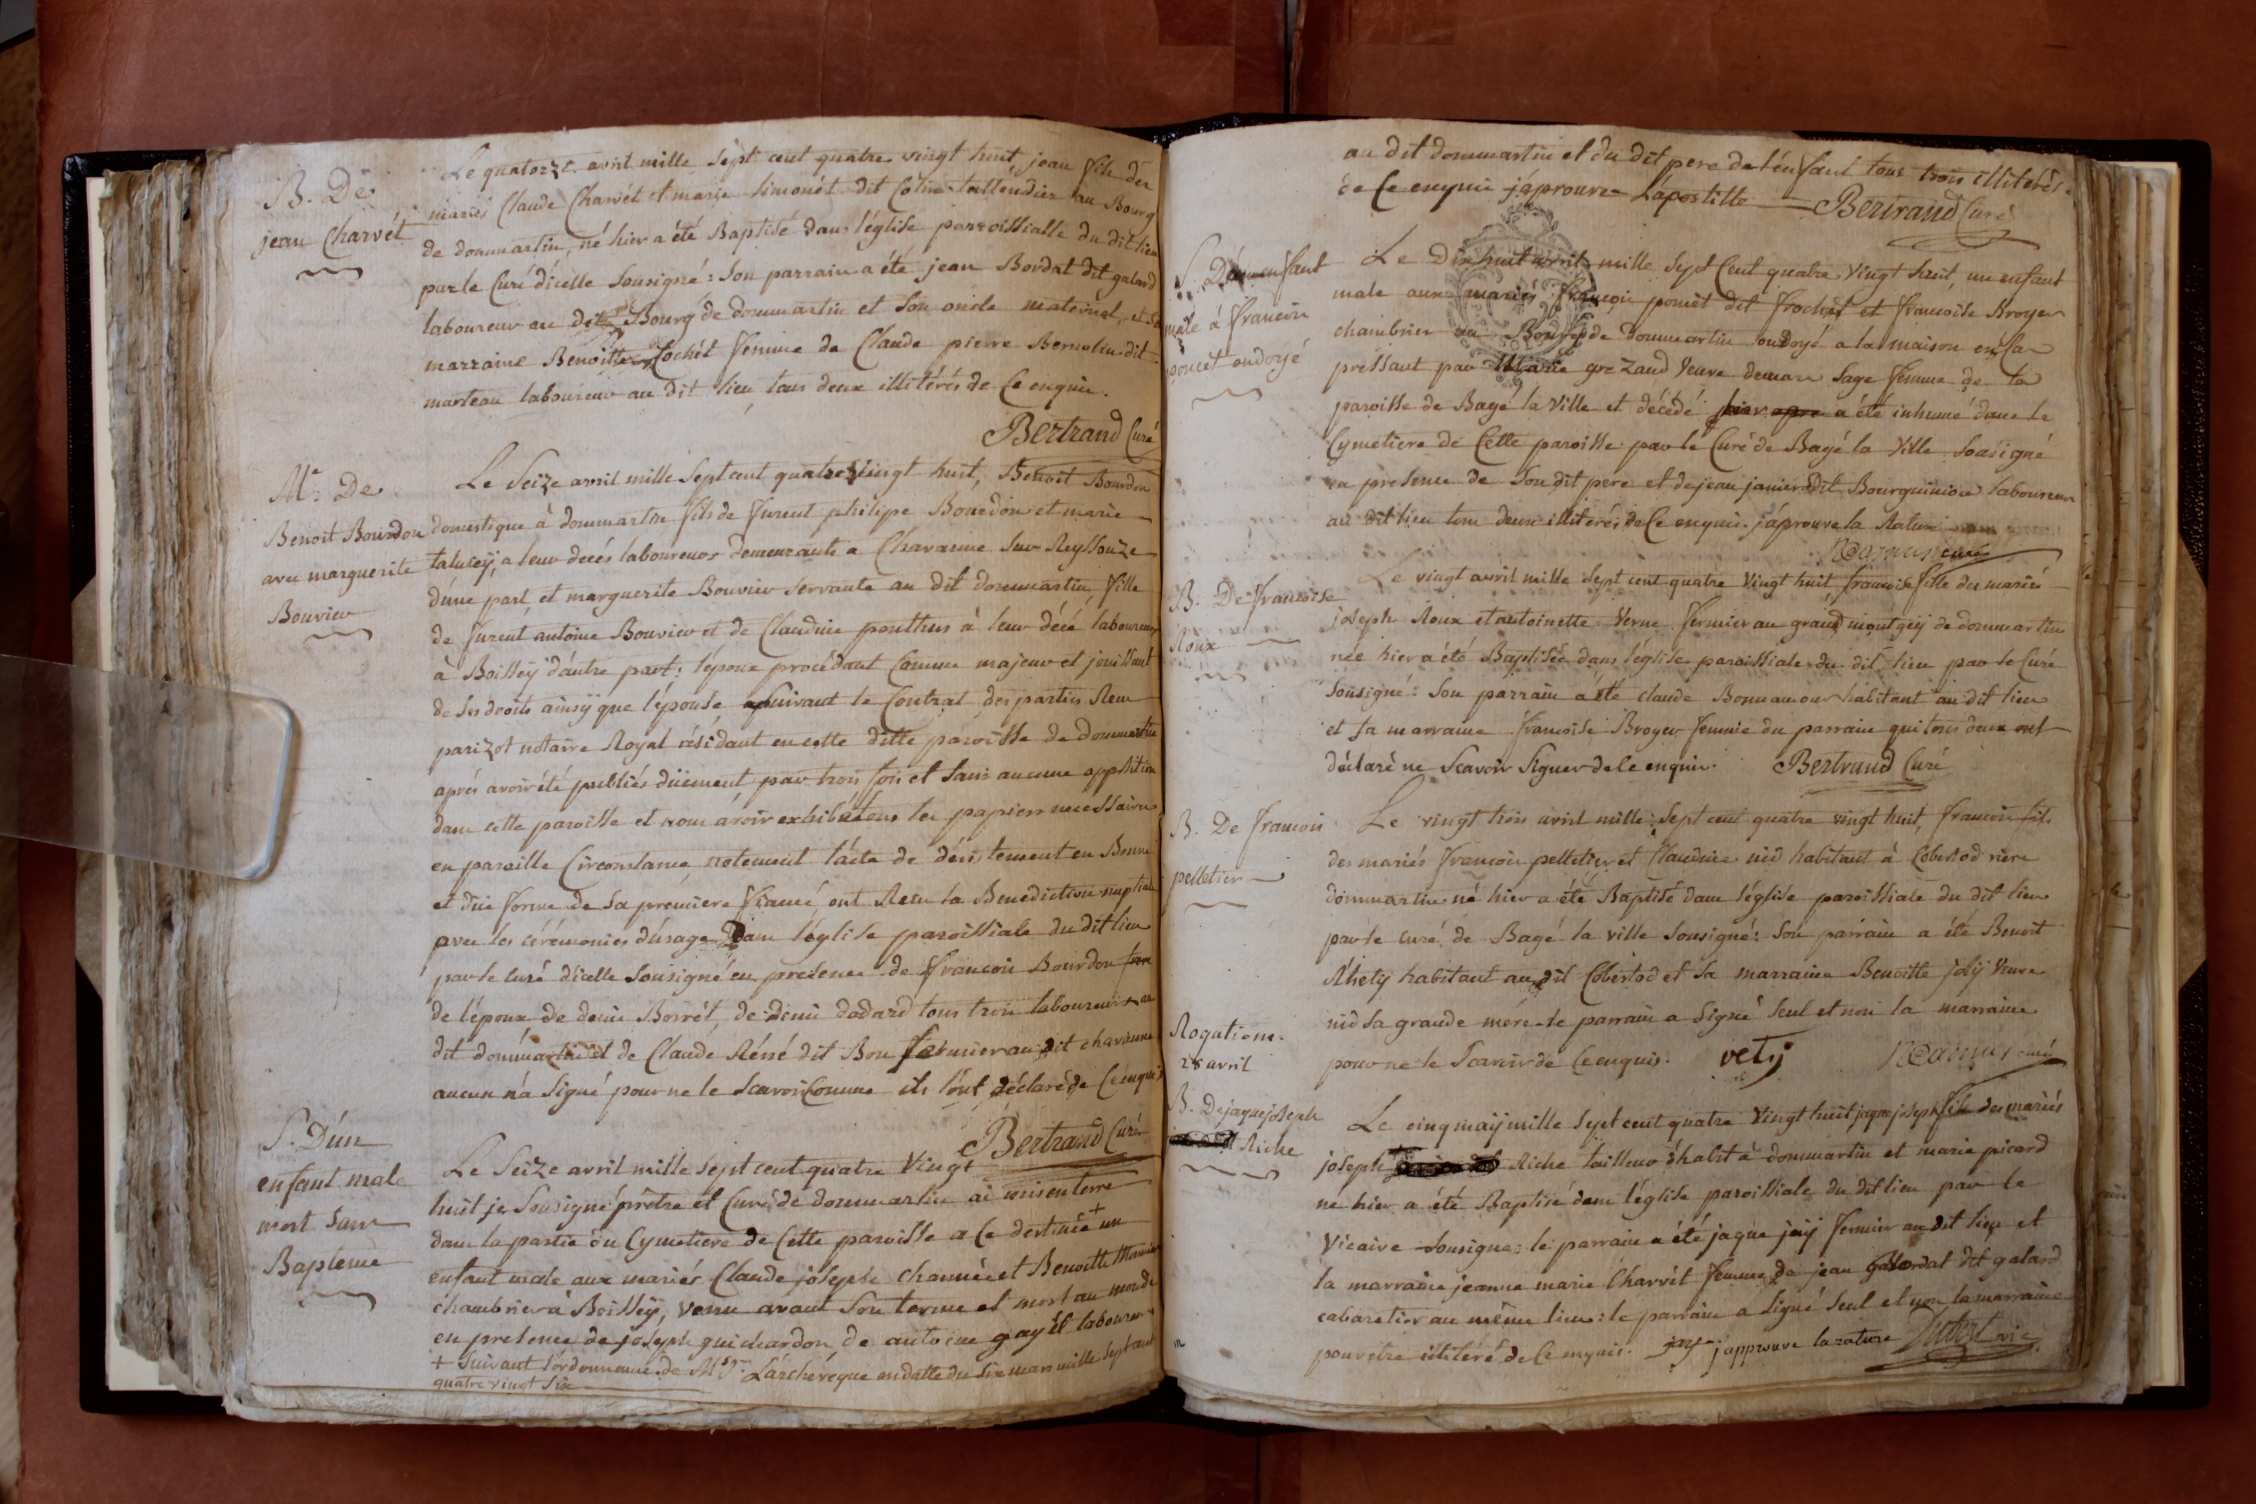 B. De
jean Charvét
Le quatorze avril mille sept cent quatre vingt huit, jean fils des
mariés Claude Charvét et marie simonét dit Colin taillendier au Bourg
de dommartin, né hier a été Baptisé dans l'église parroissialle du dit lieu
par le Curé d'icelle sousigné: son parrain a été jean Bordat dit galard
laboureur au dit Bourg de dommartin et son oncle maternel, et sa
marraine Benoitte Cochét femme de Claude pierre Bernolin dit
marteau laboureur au dit lieu tous deux illitérés de ce enquis.
Bertrand Curé
Mr. De
Benoit Bourdon
avec marguerite
Bouvier
Le seize avril mille sept cent quatre vingt huit, Benoit Bourdon
domestique à dommartin fils de furent philipe Bourdon et marie
talucey, a leur decés laboureurs demeurants a Chavanne sur Reyssouze
d'une part, et marguerite Bouvier servante au dit dommartin fille
de furent antoine Bouvier et de Claudine ponthus à leur décé laboureurs
à Boissey d'autre part: l'epoux procédant comme majeur et jouissant
de ses droits ainsy que l'épouse suivant le Contrat des parties Reçu
parizot notaire Royal résidant en cette ditte paroisse de dommartin
aprés avoir été publiés düement par trois fois et sans aucune opposition
dans cette paroisse et nous avoir exhibé tous les papiers necessaires
en pareille Circonstance, notement l'acte de désistement en Bonne
et düe forme de sa première fiancé, ont Recu la Benediction nuptiale
avec les cérémonies d'usage Dans l'église paroissiale du dit lieu
par le curé d'icelle sousigné en presence de francois Bourdon frere
de l'époux de denis Boirét, de denis dodard tous trois laboureurs au
dit dommartin et de Claude Réné dit Bon fermier au dit chavanne
aucun n'a signé pour ne le scavoir Comme ils l'ont déclaré de ce enquis
Bertrand Curé
S. D'un
enfant male
mort sans
Bapteme
Le seize avril mille sept cent quatre vingt
huit je sousigné prêtre et Curé de dommartin ai mis en terre
dans la partie du Cymetiere de cette paroisse a ce destinée + un
enfant male aux mariés Claude joseph channée et Benoitte
chambrier à Boissey, venu avant son terme et mort au monde
en presence de joseph guichardon de antoine gayét laboureurs
+ suivant l'ordonnance de Msgr L'archévéque en datte du six mars mille sept cent
quatre vingt six
au dit dommartin et du dit pere de l'enfant tous trois illiterés
de Ce enquis j'aprouve Lapostille Bertrand Curé
S. D'un enfant
male à francois
poncét ondoyé
Le Dix huit avril mille sept Cent quatre vingt huit, un enfant
male aux mariés francois poncét dit frochét et francoise Broyer
chambrier au Bourg de dommartin ondoyé a la maison en cas
pressant par Marie grezaud veuve demare sage femme de la
paroisse de Bagé la Ville et décédé hier a été inhumé dans le
Cymetiere de Cette paroisse par le Curé de Bagé la Ville sousigné
en presence de son dit pere et de jean janier dit Bourguinion laboureur
au dit lieu tous deux illiterés de Ce enquis. j'aprouve la Rature
curé
B. De francoise
Roux
Le vingt avril mille sept cent quatre vingt huit, francoise fille des mariés
joseph Roux et antoinette Verne fermier au grand montgey de dommartin
née hier a été Baptisée dans l'église paroissiale du dit lieu par le Curé
sousigné: son parrain a été claude Bonnamour habitant au dit lieu
et sa marraine francoise Broyer femme du parrain qui tous deux ont
déclaré ne scavoir signer de ce enquis. Bertrand Curé
B. De francois
pelletier
Le vingt trois avril mille sept cent quatre vingt huit, francois fils
des mariés francois pelletier et Claudine nid habitant à Cobertod riere
dommartin né hier a été Baptisé dans l'église paroissiale du dit lieu
par le curé de Bagé la ville sousigné: son parrain a été Benoit
Rhety habitant au dit Cobertod et sa marraine Benoitte joly veuve
nid sa grande mére le parrain a signé seul et non la marraine
pour ne le scavoir de ce enquis. vety curé
Rogations
28 avril
B. De jaque joseph
Riche
Le cinq may mille sept cent quatre vingt huit jaque joseph fils des mariés
joseph Riche tailleur d'habit à dommartin et marie picard
ne hier a été Baptisé dans l'église paroissiale du dit lieu par le
Vicaire sousigne: le parrain a été jaque jay fermier au dit lieu et
la marraine jeanne marie Charvét femme de jean Bordat dit galard
cabaretier au même lieu: le parrain a signé seul et non la marraine
pour etre illitéré de Ce enquis. jay j'approuve la rature